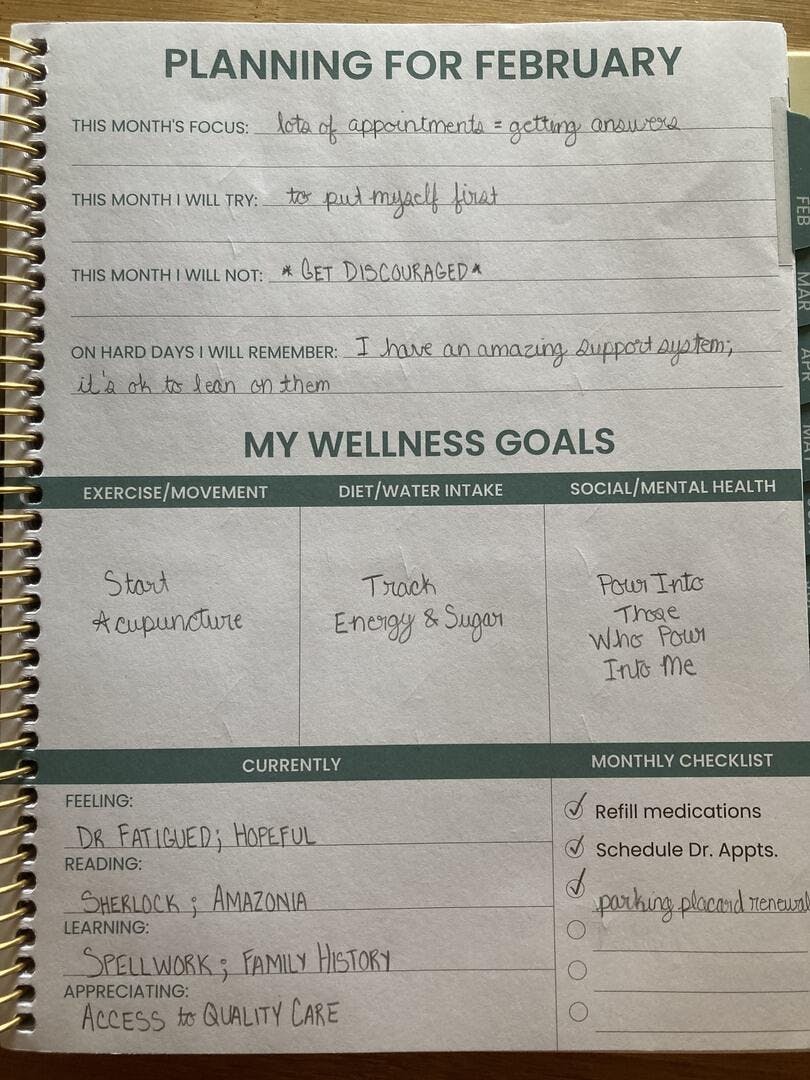 PLANNING FOR FEBRUARY
THIS MONTH'S FOCUS: lots of appointments = getting answers
THIS MONTH I WILL TRY: to put myself first
THIS MONTH I WILL NOT: * GET DISCOURAGED *
ON HARD DAYS I WILL REMEMBER: I have an amazing support system;
it's ok to lean on them
MY WELLNESS GOALS
EXERCISE/MOVEMENT DIET/WATER INTAKE SOCIAL/MENTAL HEALTH
Start
Acupuncture
Track
Energy & Sugar
Pour Into
Those
Who Pour
Into Me
CURRENTLY
FEELING:
DR FATIGUED; HOPEFUL
READING:
SHERLOCK; AMAZONIA
LEARNING:
SPELLWORK; FAMILY HISTORY
APPRECIATING:
ACCESS to QUALITY CARE
MONTHLY CHECKLIST
Refill medications
Schedule Dr. Appts.
parking placard renewal
FEB
MAR
APR